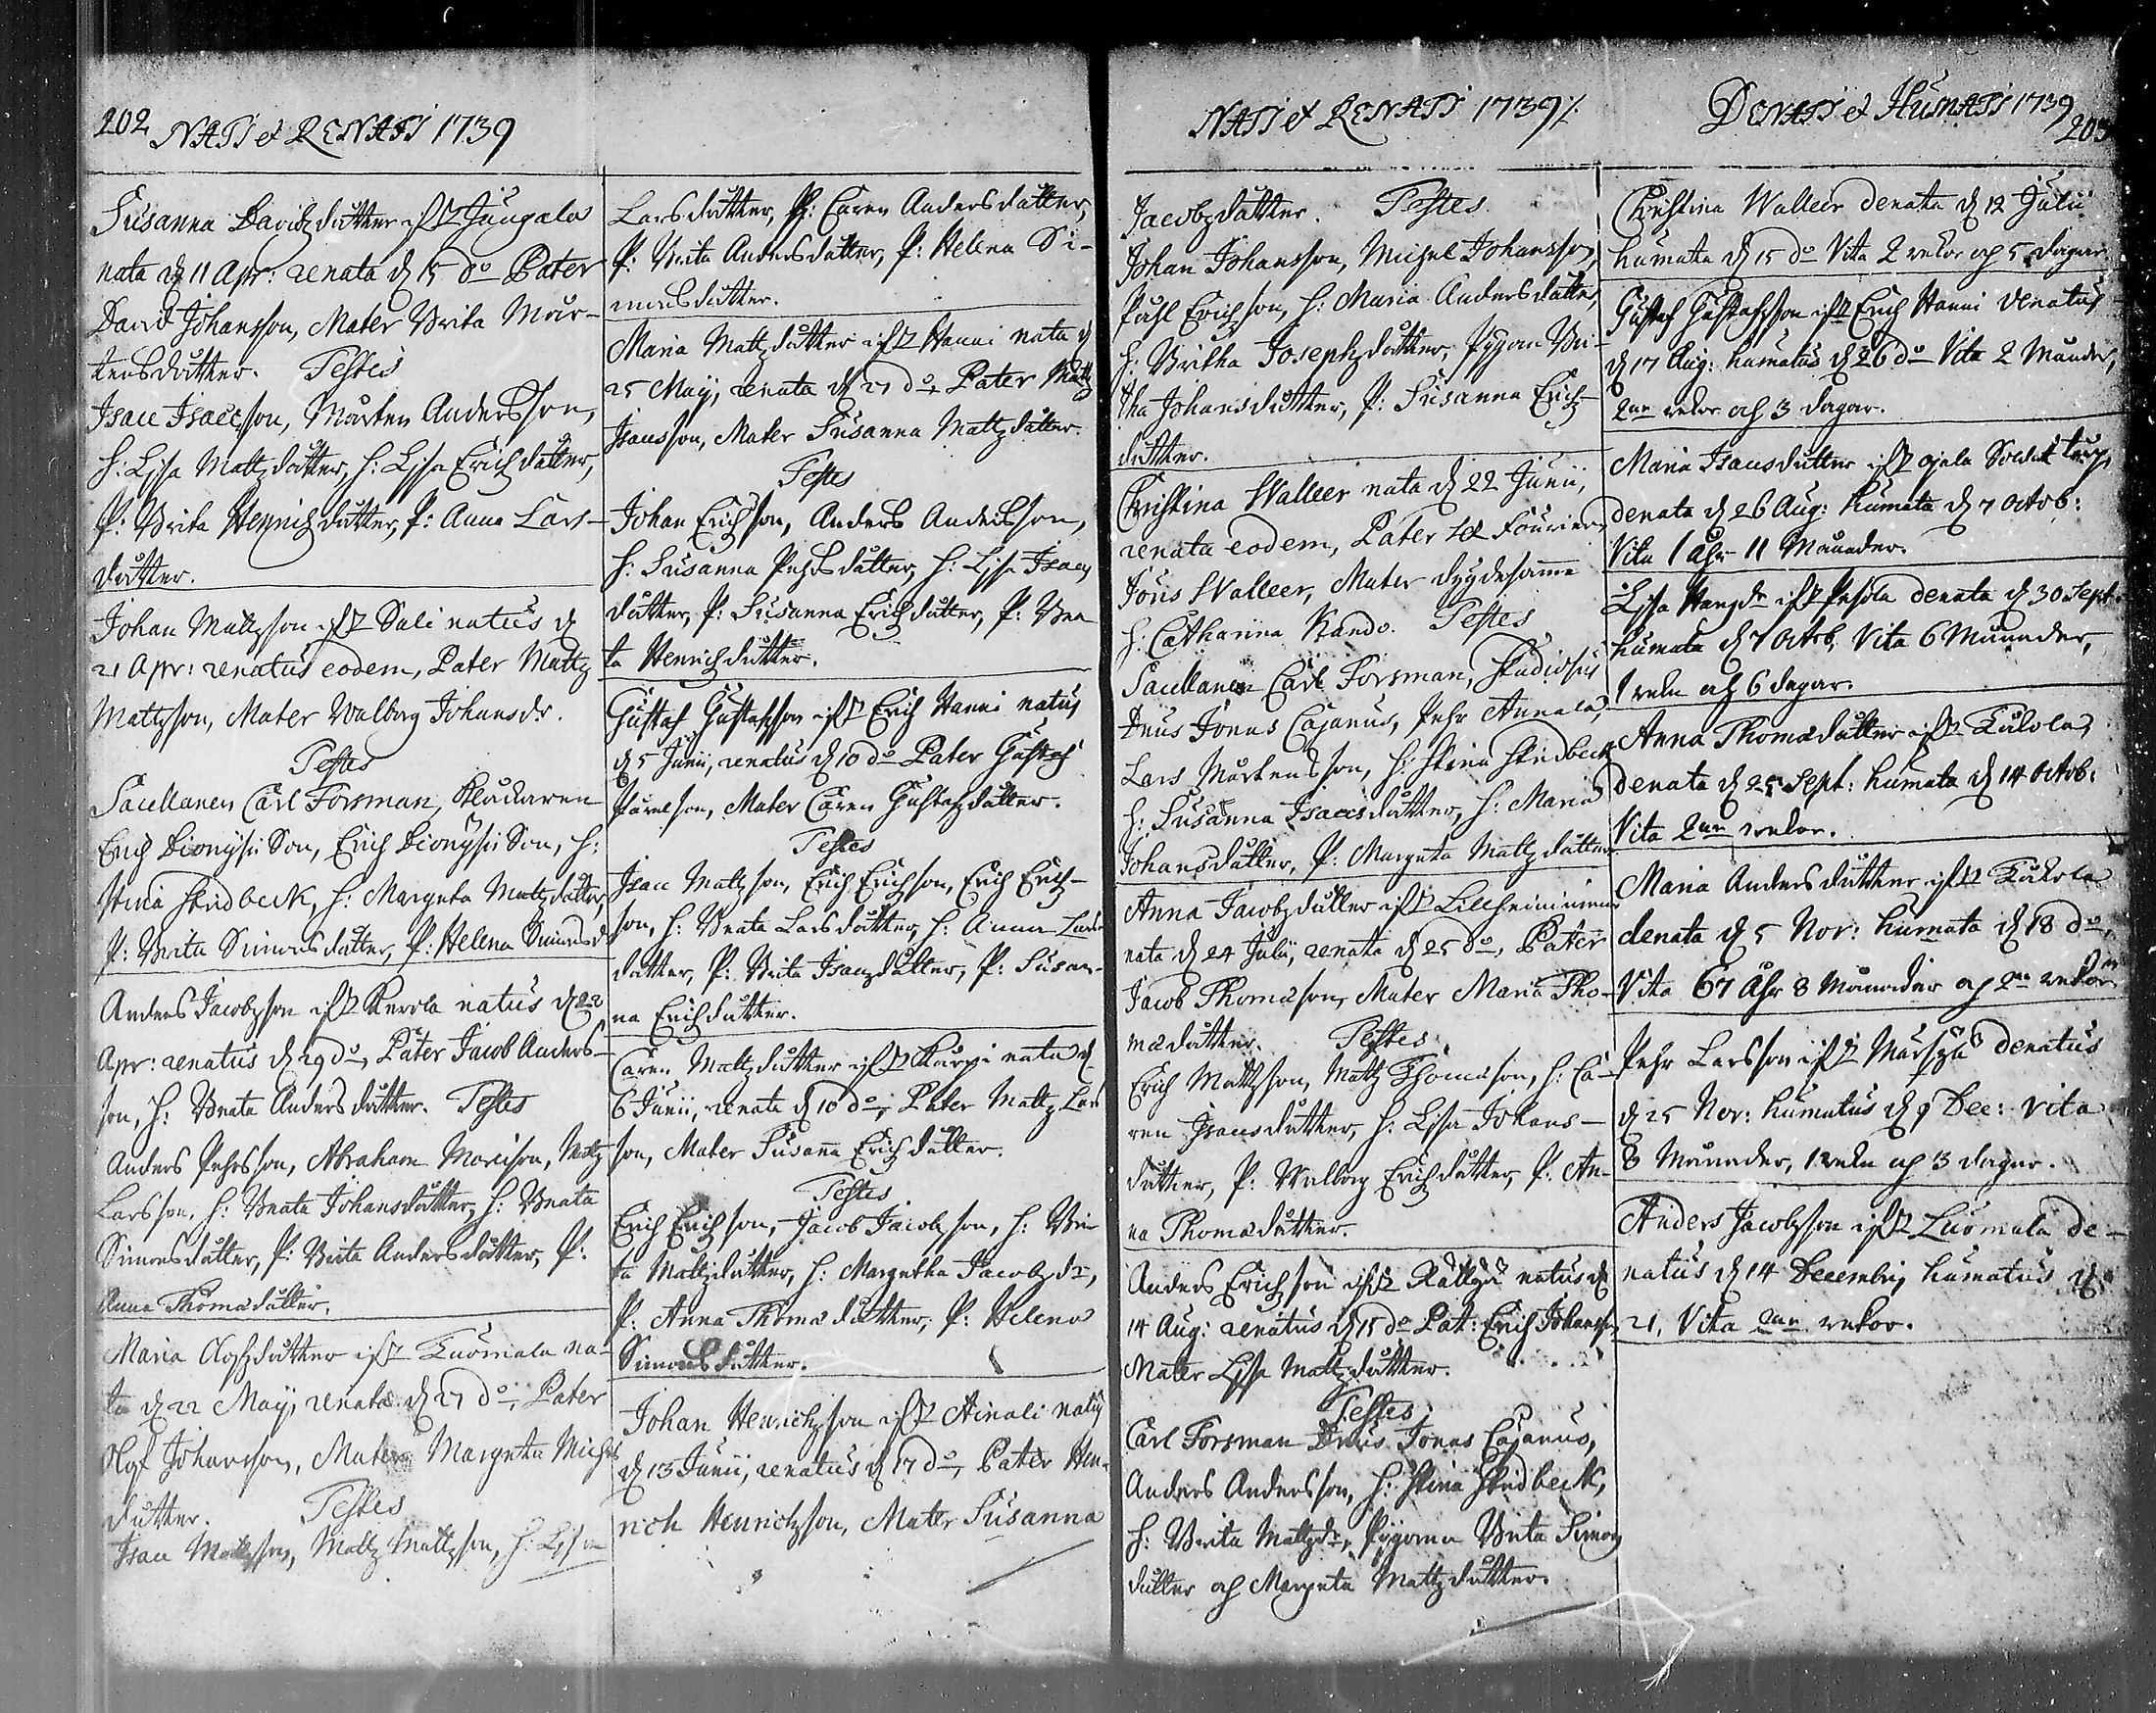 202 NATI et RENATI 1739
Susanna Davidzdutter ifr Jungala
nata d 11 Apr: renata d 15 do Pater
David Johansson, Mater Brita Mår-
tensdutter. Testes
Isac Isacsson, Mårten Andersson,
H: Lisa Mattzdutter, H: Lisa Erichdutter,
P: Brita Henrichdutter, P: Anna Lars-
dutter.
Johan Mattzson ifr Sali natus d
21 Apr: renatus eodem, Pater Mattz
Mattzson, Mater Walborg Johansdr.
Testes
Sacellanen Carl Forsman, Klockaren
Erich Dionysii Son, Erich Dionysii Son, H:
Stina Stridbeck, H: Margeta Mattzdutter,
P: Brita Simonsdutter, P: Helena Simonsd
Anders Jacobzson ifr Kerola natus d 22
Apr: renatus d 29 do, Pater Jacob Anders-
son, H: Beata Andersdutter. Testes
Anders Pehrsson, Abraham Moroison, Mattz
Larsson, H: Beata Johansdutter, H: Beata
Simonsdutter, P: Brita Andersdutter, P:
Anna Thomædutter.
Maria Olofzdutter ifr Luomala na-
ta d 22 Maij, renata d 27 do, Pater
Olof Johansson, Mater Margeta Michels
dutter. Testes
Isac Mattzson, Mattz Mattzson, H: Lisa
Larsdutter, P: Caren Andersdutter,
P: Brita Andersdutter, P: Helena Si-
monsdutter.
Maria Mattzdutter ifr Hanni nata d
25 Maij, renata d 27 do, Pater Mattz
Isacsson, Mater Susanna Mattzdutter.
Testes
Johan Erichson, Anders Andersson,
H: Susanna Pehrsdutter, H: Lisa Isacs
dutter, P: Susanna Erichdutter, P: Bea
ta Henrichdutter.
Gustaf Gustafsson ifr Erich Hanni natus
d 5 Junii, renatus d 10 do Pater Gustaf
Pavelson, Mater Caren Gustafzdutter.
Testes
Isac Mattzson, Erich Erichson, Erich Erich-
son, H: Beata Larsdutter, H: Anna Lars
dutter, P: Brita Isaczdutter, P: Susan-
na Erichdutter.
Caren Mattzdutter ifr Kauppi nata d
6 Junii, renata d 10 do, Pater Mattz Lars
son, Mater Susana Erichdutter.
Testes
Erich Erichson, Jacob Jacobzson, H: Bri-
ta Mattzdutter, H: Margetha Jacobzdr,
P: Anna Thomædutter, P: Helena
Simonsdutter.
Johan Henrichzson ifr Ainali natus
d 13 Junii, renatus d 17 do, Pater Hen-
rich Henrichzson, Mater Susanna
NATI et RENATI 1739 /.
Jacobzdutter. Testes
Johan Johansson, Michel Johansson,
Påhl Erichson, H: Maria Andersdutter,
H: Britha Josephzdutter, Pigan Bri-
tha Johansdutter, P: Susanna Erich-
dutter.
Christina Walleer nata d 22 Junii,
renata eodem, Pater Fourier
Jöns Walleer, Mater dygdesamme
H: Catharina Kando. Testes
Sacellanen Carl Forsman, Studiosus
Dnus Jonas Cajanus, Pehr Annala,
Lars Mårtensson, H: Stina Stridbeck,
H: Susanna Isacsdutter, H: Maria
Johansdutter, P: Margeta Mattzdutter
Anna Jacobzdutter ifr Lillheinimem
nata d 24 Julii, renata d 25 do, Pater
Jacob Thomæson, Mater Maria Tho-
mædutter. Testes
Erich Mattzson, Mattz Thomæson, H: Ca-
ren Isacsdutter, H: Lisa Johans-
dutter, P: Walborg Erichdutter, P: An-
na Thomædutter.
Anders Erichson ifr Rättyä natus d
14 Aug: renatus d 15 do Pat: Erich Johansson,
Mater Lisa Mattzdutter.
Testes
Carl Forsman Dnus Jonas Cajanus,
Anders Andersson, H: Stina Stridbeck,
H: Brita Mattzdr, Pigorna Brita Simons
dutter och Margeta Mattzdutter.
DENATI et HUMATI 1739
203
Christina Walleer denata d 12 Julii
humata d 15 do Vita 2 wekor och 5 dagar
Gustaf Gustafsson ifr Erich Hanni denatus
d 17 Aug: humatus d 26 do Vita 2 Månader,
2ne wekor och 3 dagar.
Maria Isacsdutter ifr Ojala Soldat
denata d 26 Aug: humata d 7 Octob:
Vita 1 åhr 11 Månader.
Lisa ifr Pesola denata d 30 Sept.
humata d 7 Octob, Vita 6 Månader,
1 weka och 6 dagar.
Anna Thomædutter ifr Kukola
denata d 25 Sept: humata d 14 Octob:
Vita 2ne wekor.
Maria Andersdutter ifr Kukola
denata d 5 Nov: humata d 18 do,
Vita 67 Åhr 8 Månader och 2ne wekor
Pehr Larsson ifr Marsyla denatus
d 25 Nov: humatus d 9 Dec: vita
8 Månader, 1 weka och 3 dagar.
Anders Jacobzson ifr Luomala de-
natus d 14 Decembr, humatus d
21, Vita 2ne wekor.